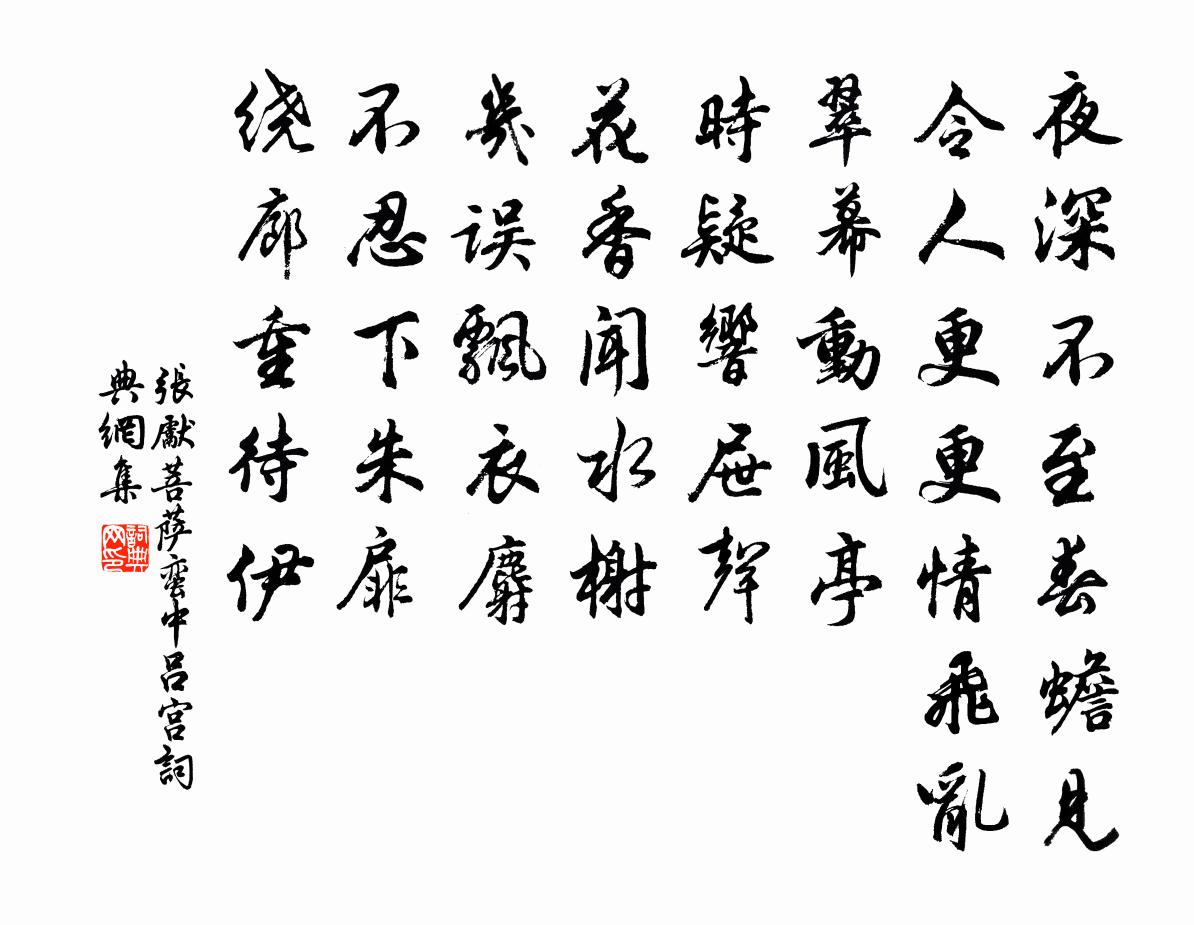 夜深不至春蟾見
令人更更情飛亂
翠幕動風亭
時疑響屧聲
花香聞水榭
幾误飄衣麝
不忍下朱扉
绕廊重待伊
張獻菩萨蛮中呂宫詞
典網集
詞典网印